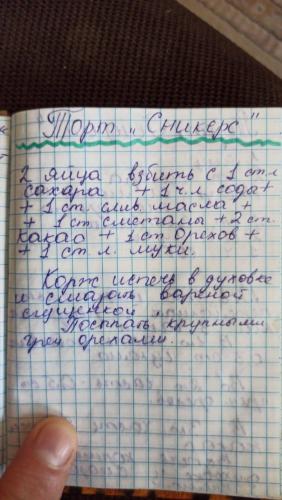 Торт „Сникерс"
2 яйца взбить с 1 ст.л
сахара + 1 ч.л соды +
+ 1 ст. слив. масла +
+ 1 ст. сметаны + 2 ст.
какао + 1 ст. орехов +
+ 1 ст. л. муки.
Корж испечь в духовке
и смазать вареной
сгущенкой.
Посыпать крупными
грец орехами.